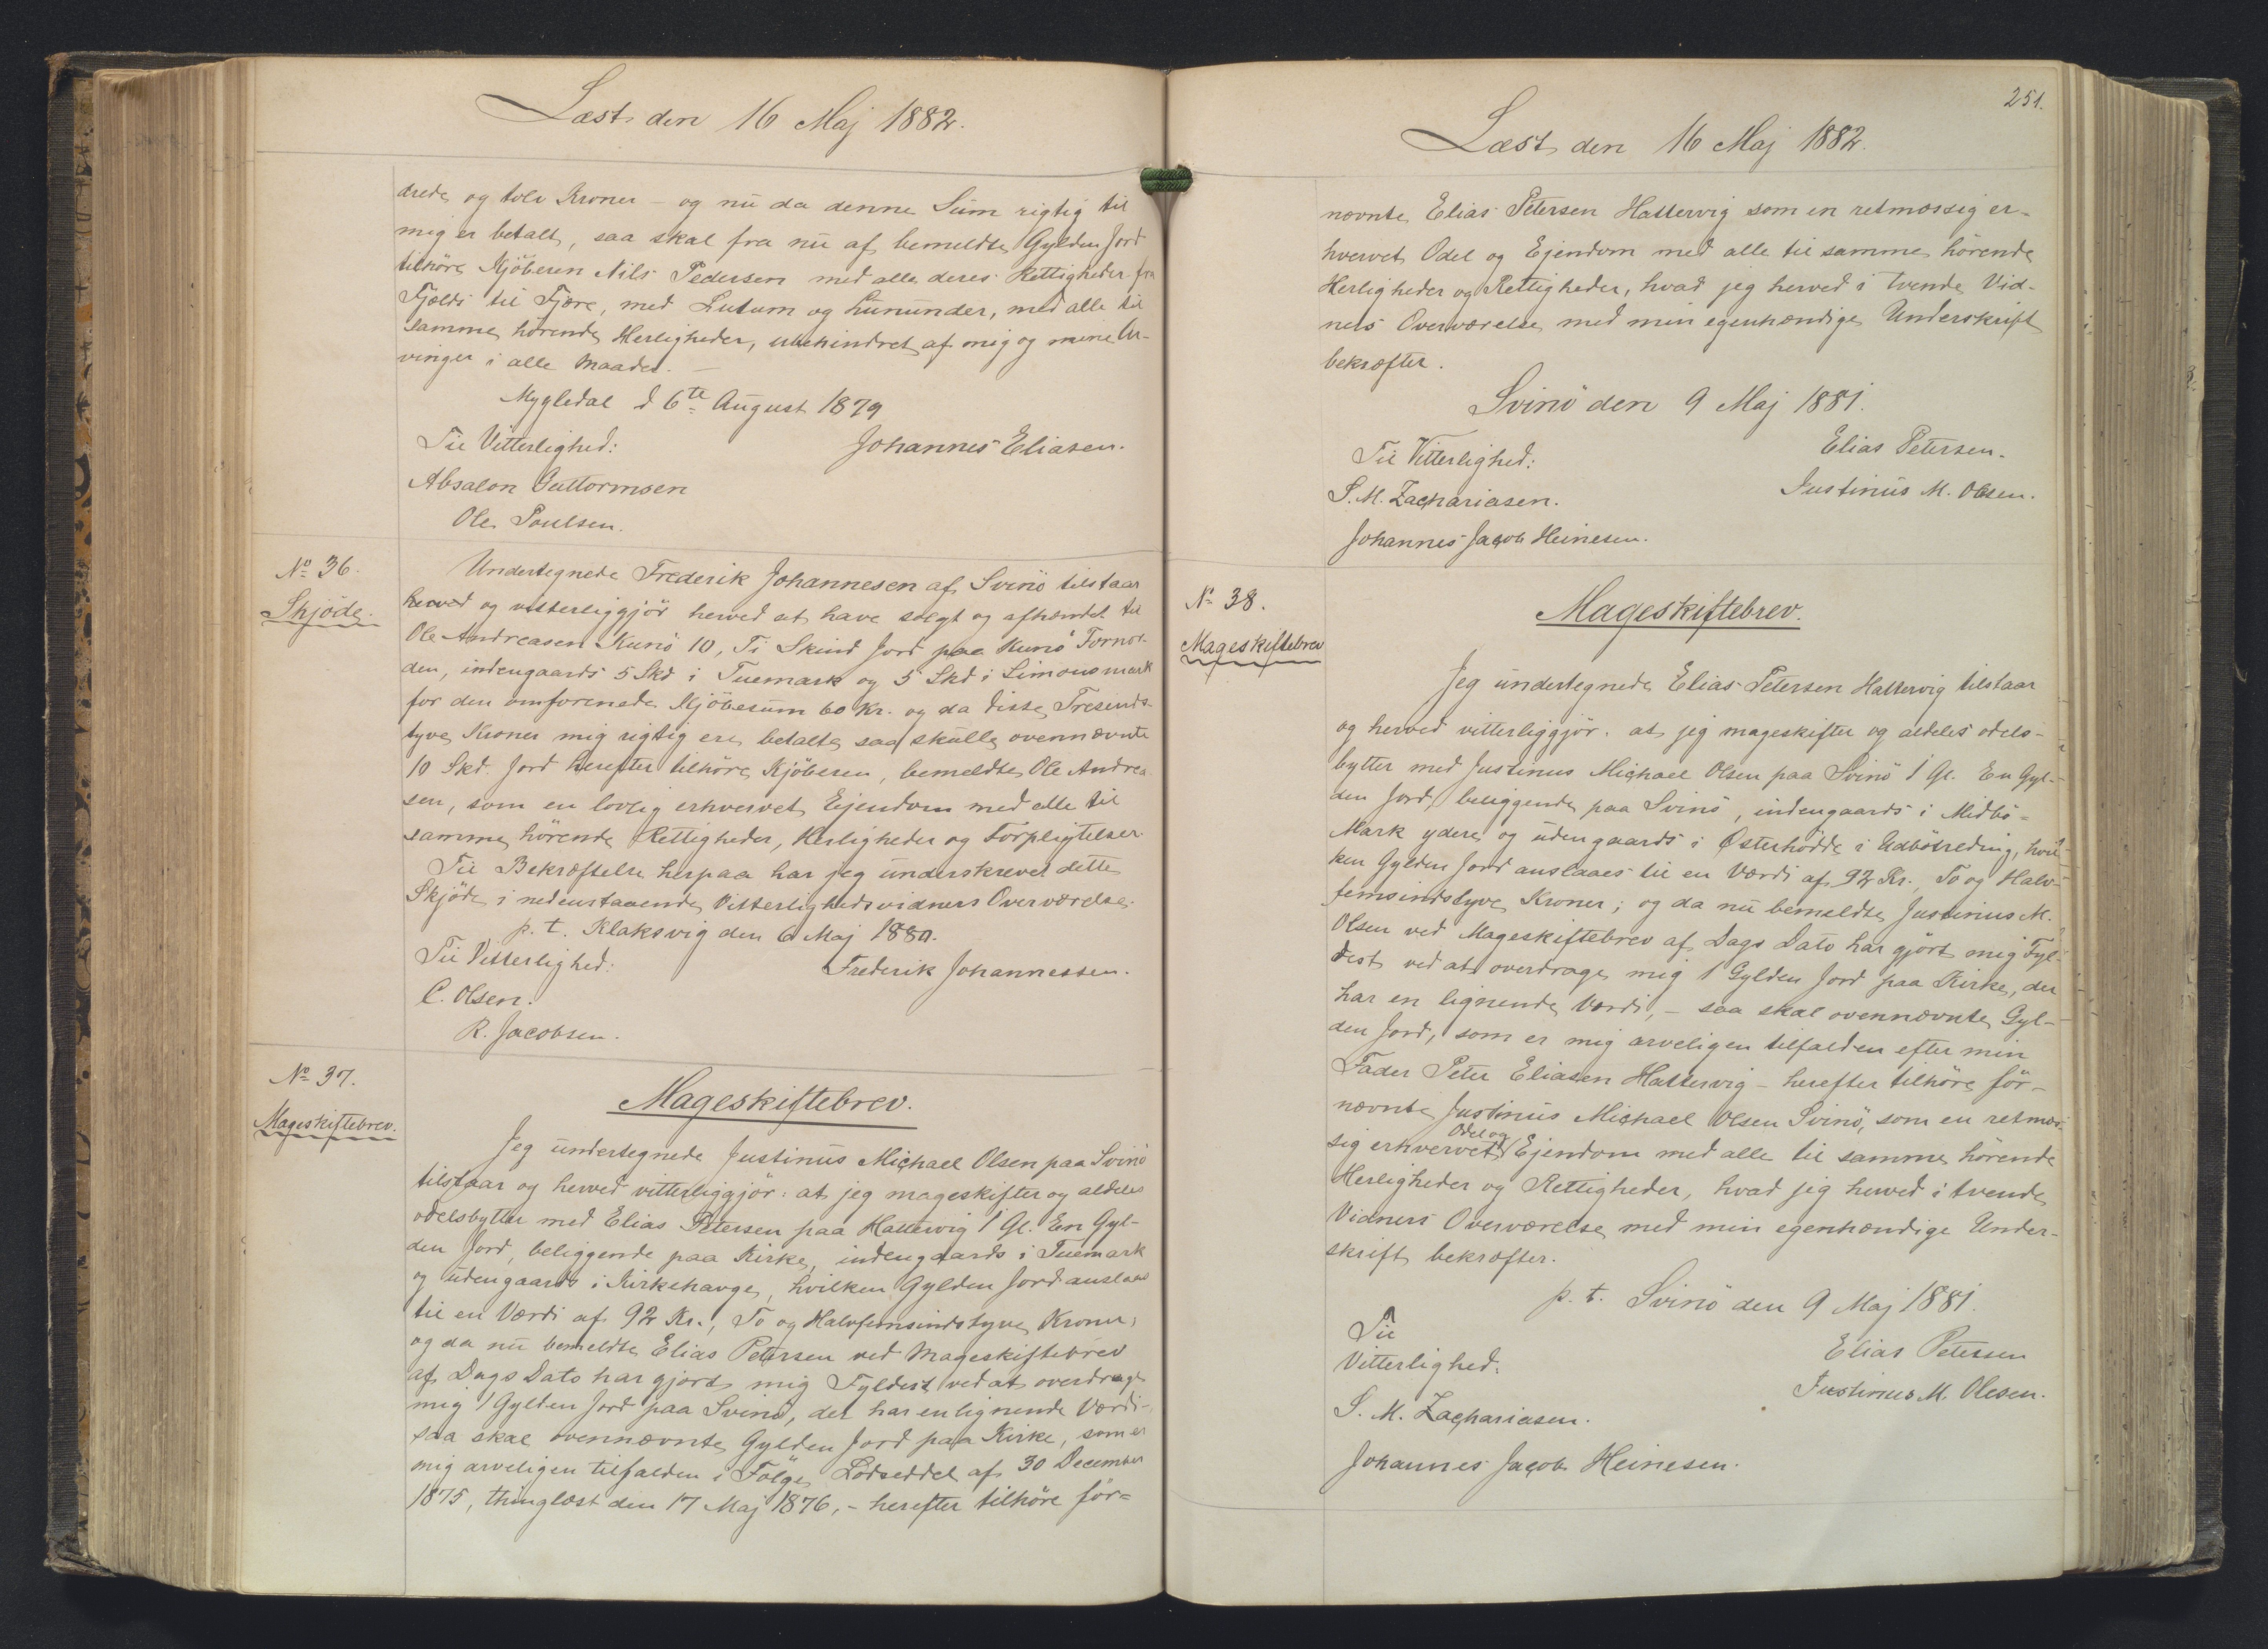 Læst den 16 Maj 1882.
drede og tolv Kroner – og nu da denne Sum rigtig til
mig er betalt, saa skal fra nu af bemeldte Gylden Jord
tilhøre Kjöberen Nils Pedersen med alle deres Rettigheder fra
Fjælds til Fjære, med Lutum og Lunnunder, med alle til
samme hørende Herligheder, ubehindret af mig og mine Ar-
vinger i alle Maader. –
Mygledal d 6te August 1879
Til Vitterlighed:
Johannes Eliasen.
Absalon Guttormsen
Ole Poulsen.
No 36.
Skjöde.
Undertegnede Frederik Johannesen af Svinö tilstaar
herved og vitterliggjör herved at have solgt og afhændet til
Ole Andreasen Kunö 10, Ti Skind Jord paa Kunö Fornor-
den, indengaards 5 Skd i Tuemark og 5 Skd i Simonsmark
for den omforenede Kjöbesum 60 Kr. og da disse Tresinds-
tyve Kroner mig rigtig ere betalte saa skulle ovennævnte
10 Skd. Jord herefter tilhöre Kjöberen, bemeldte Ole Andrea
sen, som en lovlig erhvervet Eiendom med alle til
samme hörende Rettigheder, Herligheder og Forpligtelser.
Til Bekræftelse herpaa har jeg underskrevet dette
Skjöde i nedenstaaende Vitterlighedsvidners Overværelse.
p. t. Klaksvig den 6 Maj 1880.
Til Vitterlighed:
Frederik Johannessen.
C. Olsen.
R. Jacobsen.
No 37.
Mageskiftebrev.
Mageskiftebrev.
Jeg undertegnede Justinus Michael Olsen paa Svinö
tilstaar og herved vitterliggjör: at jeg mageskifter og aldeles
odelsbytter med Elias Petersen paa Hattervig 1 Gl. En Gyl-
den Jord, beliggende paa Kirke, indengaards i Tuemark
og udengaards i Kirkehauge, hvilken Gylden Jord anslaaes
til en Værdi af 92 Kr., To og Halvfemsindstyve Kroner;
og da nu bemeldte Elias Petersen ved Mageskiftebrev
af Dags Dato har gjort mig Fyldest ved at overdrage
mig 1 Gylden Jord paa Svinö, der har en lignende Værdi –
saa skal ovennævnte Gylden Jord paa Kirke, som er
mig arveligen tilfalden i Fölge Lodseddel af 30 December
1875, thinglæst den 17 Maj 1876, – herefter tilhöre för=
251.
Læst den 16 Maj 1882.
nævnte Elias Petersen Hattervig som en retmæssig er-
hvervet Odel og Ejendom med alle til samme hörende
Herligheder og Rettigheder, hvad jeg herved i tvende Vid-
ners Overværelse med min egenhændige Underskrift
bekræfter.
Svinö den 9 Maj 1881.
Til Vitterlighed:
Elias Petersen.
S. M. Zachariasen.
Justinus M. Olsen.
Johannes Jacob Heinesen.
No 38.
Mageskiftebrev
Mageskiftebrev.
Jeg undertegnede Elias Petersen Hattervig tilstaar
og herved vitterliggjör: at jeg mageskifter og aldeles odels-
bytter med Justinus Michael Olsen paa Svinö 1 Gl. En Gyl-
den Jord, beliggende paa Svinö, indengaards i Midbö-
Mark ydere og udengaards i Østerhödde i Udbötreding, hvil-
ken Gylden Jord anslaaes til en Værdi af 92 Kr., To og Halv-
femsindstyve Kroner; og da nu bemeldte Justinus M.
Olsen ved Mageskiftebrev af Dags Dato har gjört mig Fyl-
dest ved at overdrage mig 1 Gylden Jord paa Kirke, der
har en lignende Værdi, – saa skal ovennævnte Gyl-
den Jord, som er mig arveligen tilfalden efter min
Fader Peter Eliasen Hattervig – herefter tilhöre för-
nævnte Justinus Michael Olsen Svinö, som en retmæs-
sig erhvervet Odel og Ejendom med alle til samme hörende
Herligheder og Rettigheder, hvad jeg herved i tvende
Vidners Overværelse med min egenhændige Under-
skrift bekræfter.
p. t. Svinö den 9 Maj 1881.
Til
Vitterlighed:
Elias Petersen
Justinus M. Olesen.
S. M. Zachariasen.
Johannes Jacob Heinesen.